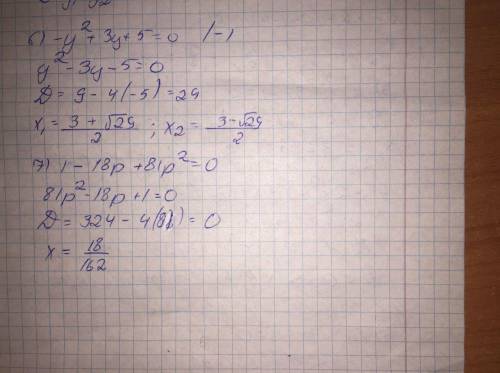 6) -y² + 3y + 5 = 0 /-1
y² - 3y - 5 = 0
D = 9 - 4(-5) = 29
x₁ = \frac{3 + √29}{2} ; x₂ = \frac{3 - √29}{2}
7) 1 - 18p + 81p² = 0
81p² - 18p + 1 = 0
D = 324 - 4(81) = 0
x = \frac{18}{162}